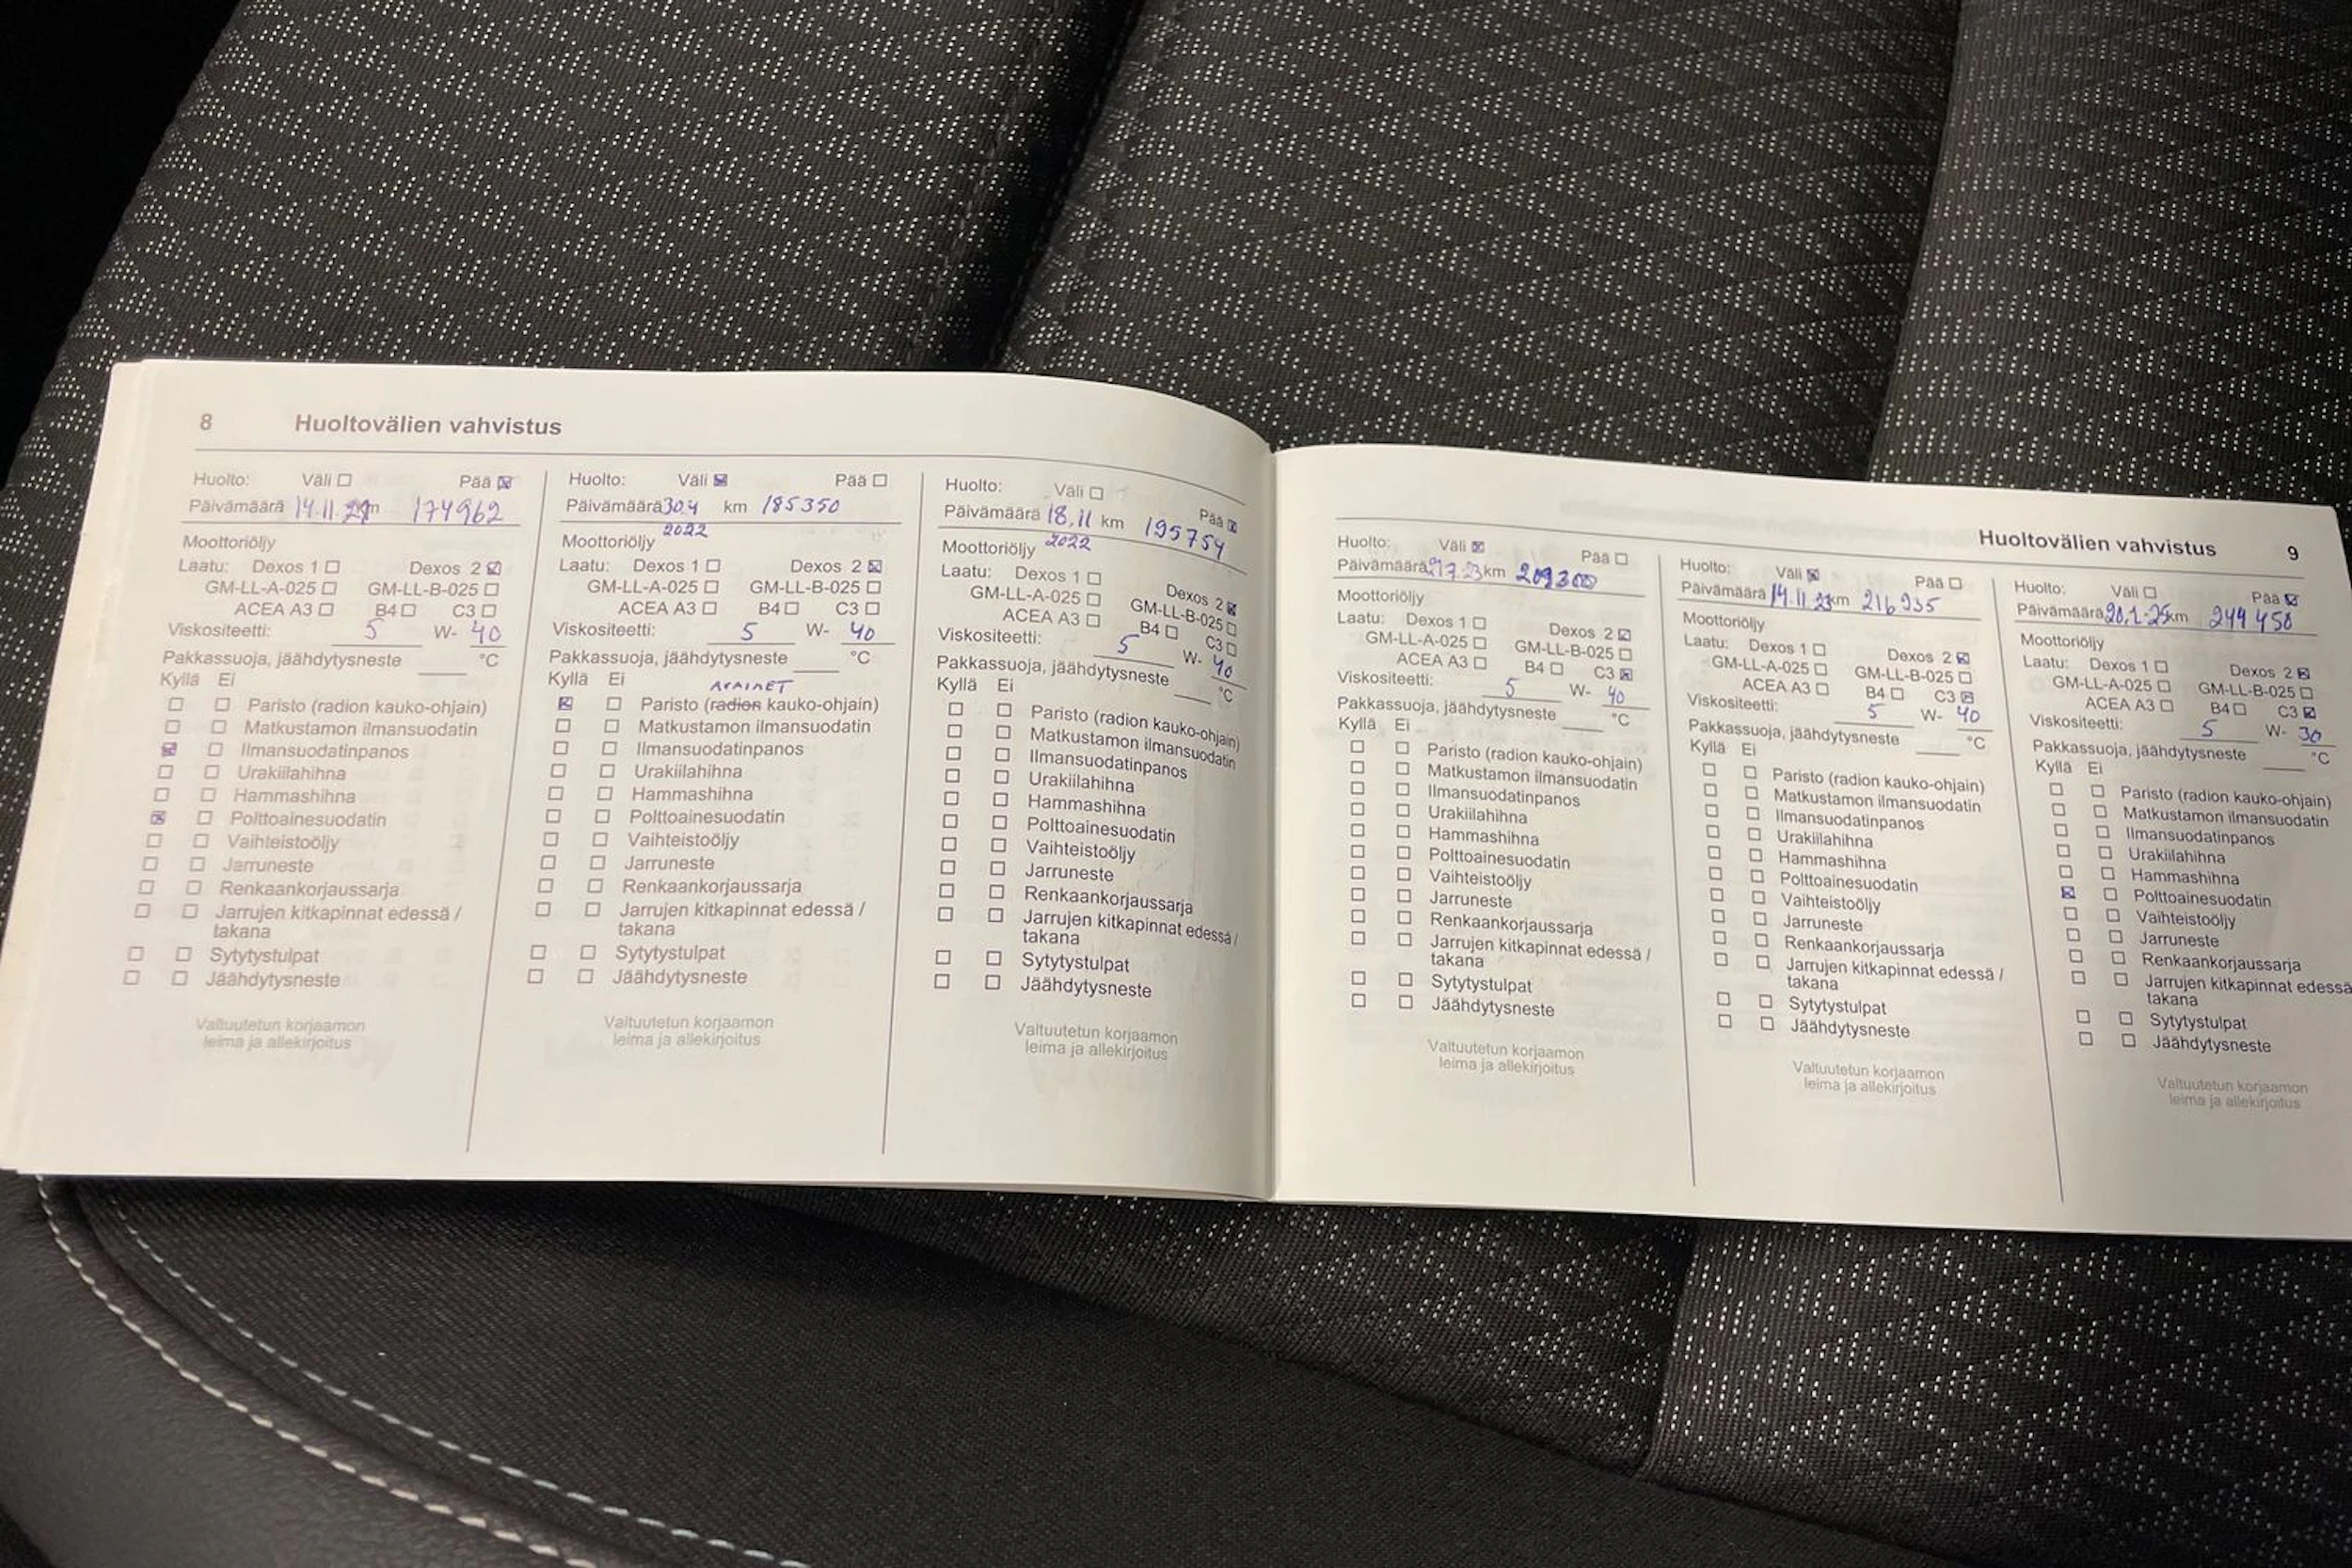 8 Huoltovälien vahvistus
Huolto: Väli ☐ Pää ☒
Päivämäärä 14.11. km 174962
Moottoriöljy
Laatu: Dexos 1 ☐ Dexos 2 ☒
GM-LL-A-025 ☐ GM-LL-B-025 ☐
ACEA A3 ☐ B4 ☐ C3 ☐
Viskositeetti: 5 W- 40
Pakkassuoja, jäähdytysneste ____ °C
Kyllä Ei
☐ ☐ Paristo (radion kauko-ohjain)
☐ ☐ Matkustamon ilmansuodatin
☒ ☐ Ilmansuodatinpanos
☐ ☐ Urakiilahihna
☐ ☐ Hammashihna
☒ ☐ Polttoainesuodatin
☐ ☐ Vaihteistoöljy
☐ ☐ Jarruneste
☐ ☐ Renkaankorjaussarja
☐ ☐ Jarrujen kitkapinnat edessä /
takana
☐ ☐ Sytytystulpat
☐ ☐ Jäähdytysneste
Valtuutetun korjaamon
leima ja allekirjoitus
Huolto: Väli ☒ Pää ☐
Päivämäärä 30.4 km 185350
2022
Moottoriöljy
Laatu: Dexos 1 ☐ Dexos 2 ☒
GM-LL-A-025 ☐ GM-LL-B-025 ☐
ACEA A3 ☐ B4 ☐ C3 ☐
Viskositeetti: 5 W- 40
Pakkassuoja, jäähdytysneste ____ °C
Kyllä Ei
☒ ☐ Paristo (radion kauko-ohjain)
☐ ☐ Matkustamon ilmansuodatin
☐ ☐ Ilmansuodatinpanos
☐ ☐ Urakiilahihna
☐ ☐ Hammashihna
☐ ☐ Polttoainesuodatin
☐ ☐ Vaihteistoöljy
☐ ☐ Jarruneste
☐ ☐ Renkaankorjaussarja
☐ ☐ Jarrujen kitkapinnat edessä /
takana
☐ ☐ Sytytystulpat
☐ ☐ Jäähdytysneste
Valtuutetun korjaamon
leima ja allekirjoitus
Huolto: Väli ☐ Pää ☒
Päivämäärä 18.11 km 195754
2022
Moottoriöljy
Laatu: Dexos 1 ☐ Dexos 2 ☒
GM-LL-A-025 ☐ GM-LL-B-025 ☐
ACEA A3 ☐ B4 ☐ C3 ☐
Viskositeetti: 5 W- 40
Pakkassuoja, jäähdytysneste ____ °C
Kyllä Ei
☐ ☐ Paristo (radion kauko-ohjain)
☐ ☐ Matkustamon ilmansuodatin
☐ ☐ Ilmansuodatinpanos
☐ ☐ Urakiilahihna
☐ ☐ Hammashihna
☐ ☐ Polttoainesuodatin
☐ ☐ Vaihteistoöljy
☐ ☐ Jarruneste
☐ ☐ Renkaankorjaussarja
☐ ☐ Jarrujen kitkapinnat edessä /
takana
☐ ☐ Sytytystulpat
☐ ☐ Jäähdytysneste
Valtuutetun korjaamon
leima ja allekirjoitus
Huoltovälien vahvistus 9
Huolto: Väli ☒ Pää ☐
Päivämäärä km 209300
Moottoriöljy
Laatu: Dexos 1 ☐ Dexos 2 ☒
GM-LL-A-025 ☐ GM-LL-B-025 ☐
ACEA A3 ☐ B4 ☐ C3 ☒
Viskositeetti: 5 W- 40
Pakkassuoja, jäähdytysneste ____ °C
Kyllä Ei
☐ ☐ Paristo (radion kauko-ohjain)
☐ ☐ Matkustamon ilmansuodatin
☐ ☐ Ilmansuodatinpanos
☐ ☐ Urakiilahihna
☐ ☐ Hammashihna
☐ ☐ Polttoainesuodatin
☐ ☐ Vaihteistoöljy
☐ ☐ Jarruneste
☐ ☐ Renkaankorjaussarja
☐ ☐ Jarrujen kitkapinnat edessä /
takana
☐ ☐ Sytytystulpat
☐ ☐ Jäähdytysneste
Valtuutetun korjaamon
leima ja allekirjoitus
Huolto: Väli ☒ Pää ☐
Päivämäärä 14.11.23 km 216935
Moottoriöljy
Laatu: Dexos 1 ☐ Dexos 2 ☒
GM-LL-A-025 ☐ GM-LL-B-025 ☐
ACEA A3 ☐ B4 ☐ C3 ☒
Viskositeetti: 5 W- 40
Pakkassuoja, jäähdytysneste ____ °C
Kyllä Ei
☐ ☐ Paristo (radion kauko-ohjain)
☐ ☐ Matkustamon ilmansuodatin
☐ ☐ Ilmansuodatinpanos
☐ ☐ Urakiilahihna
☐ ☐ Hammashihna
☐ ☐ Polttoainesuodatin
☐ ☐ Vaihteistoöljy
☐ ☐ Jarruneste
☐ ☐ Renkaankorjaussarja
☐ ☐ Jarrujen kitkapinnat edessä /
takana
☐ ☐ Sytytystulpat
☐ ☐ Jäähdytysneste
Valtuutetun korjaamon
leima ja allekirjoitus
Huolto: Väli ☐ Pää ☒
Päivämäärä 20.1-25 km 244450
Moottoriöljy
Laatu: Dexos 1 ☐ Dexos 2 ☒
GM-LL-A-025 ☐ GM-LL-B-025 ☐
ACEA A3 ☐ B4 ☐ C3 ☒
Viskositeetti: 5 W- 30
Pakkassuoja, jäähdytysneste ____ °C
Kyllä Ei
☐ ☐ Paristo (radion kauko-ohjain)
☐ ☐ Matkustamon ilmansuodatin
☐ ☐ Ilmansuodatinpanos
☐ ☐ Urakiilahihna
☐ ☐ Hammashihna
☒ ☐ Polttoainesuodatin
☐ ☐ Vaihteistoöljy
☐ ☐ Jarruneste
☐ ☐ Renkaankorjaussarja
☐ ☐ Jarrujen kitkapinnat edessä
takana
☐ ☐ Sytytystulpat
☐ ☐ Jäähdytysneste
Valtuutetun korjaamon
leima ja allekirjoitus